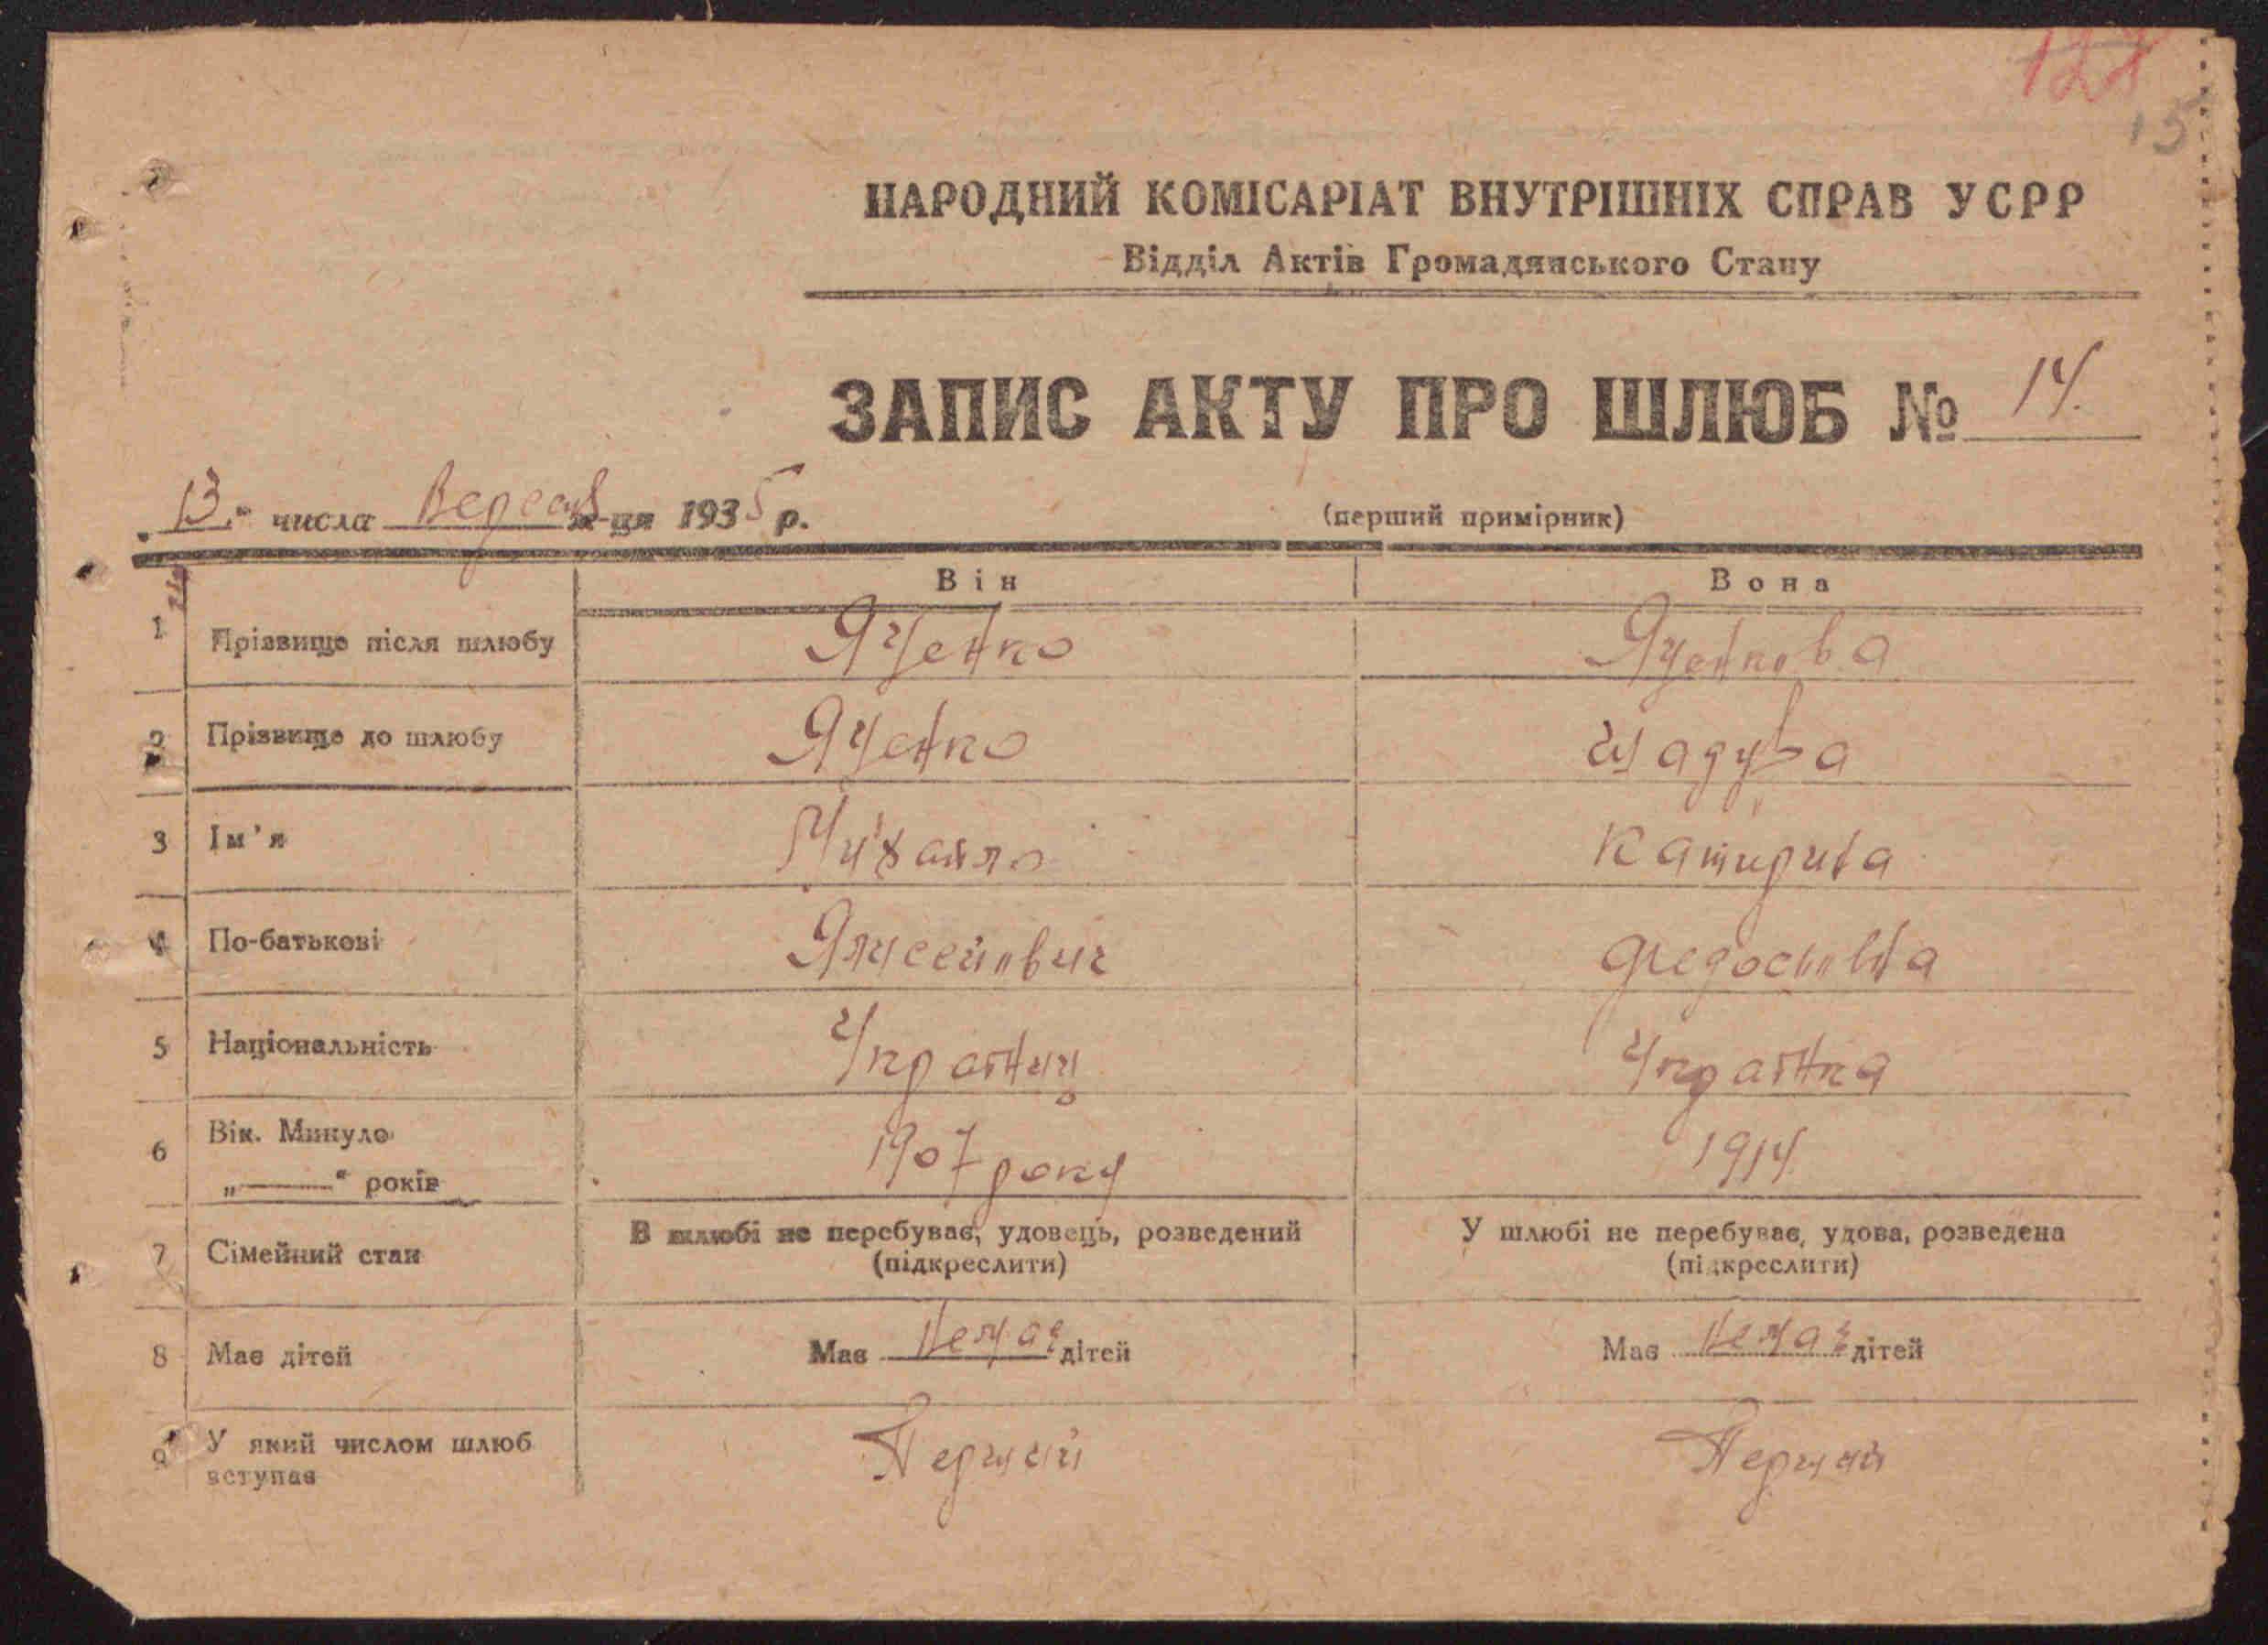 127
15
НАРОДНИЙ КОМІСАРІАТ ВНУТРІШНІХ СПРАВ УСРР
Відділ Актів Громадянського Стану
ЗАПИС АКТУ ПРО ШЛЮБ № 14.
„13“ числа Вересня м-ця 1935 р.
(перший примірник)
Він Вона
1 Прізвище після шлюбу Яценко Яценкова
2 Прізвище до шлюбу Яценко
3 Ім'я Михайло Катирина
4 По-батькові Федосіївна
5 Національність Українець Українка
6 Вік. Минуло 1907 року 1914
„——“ років
7 Сімейний стан В шлюбі не перебуває, удовець, розведений У шлюбі не перебуває, удова, розведена
(підкреслити) (підкреслити)
8 Має дітей Має Немає дітей Має Немає дітей
9 У який числом шлюб Перший Перший
вступає